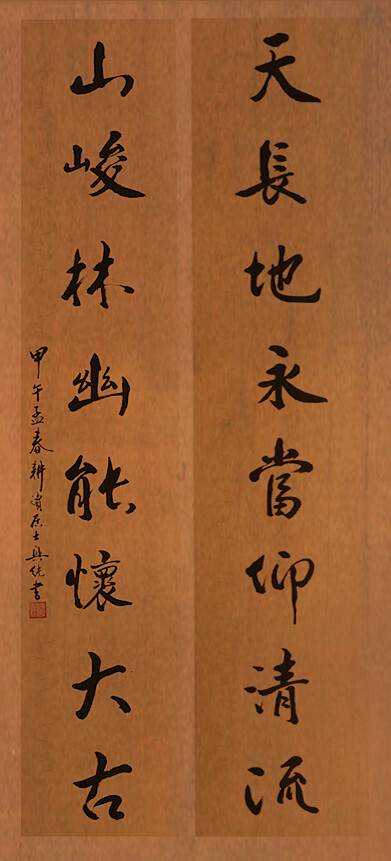 天長地永當仰清流
山峻林幽能懷大古
甲午孟春耕黃居士興統書